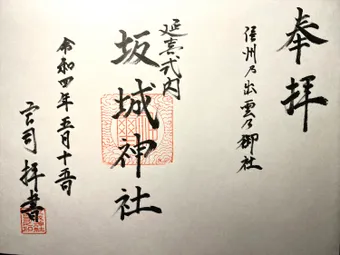 奉拝
信州乃出雲乃御社
延喜式内
坂城神社
令和四年五月十五日
宮司 拝書